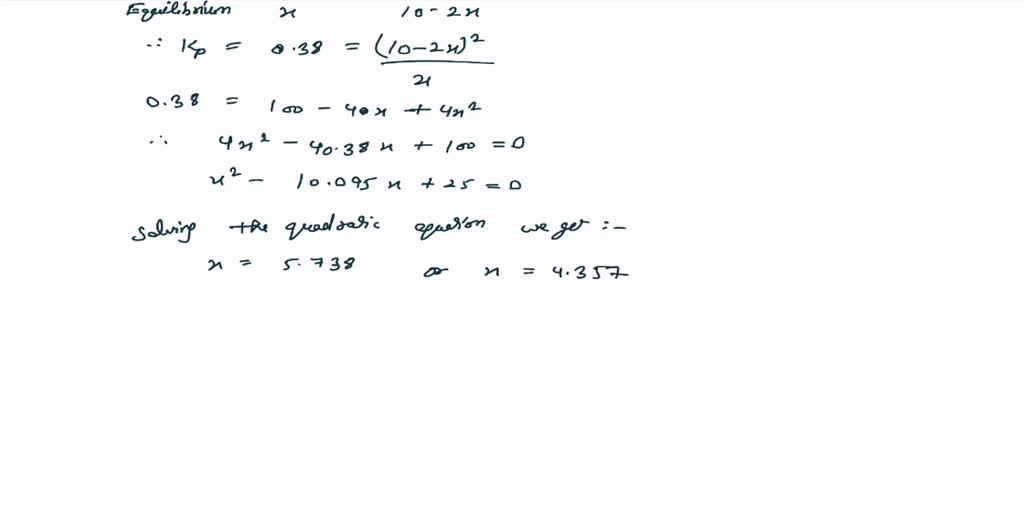 Equilibrium x 10-2x
∴ Kp = 0.38 = (10-2x)²
x
0.38 = 100 - 40x + 4x²
∴ 4x² - 40.38x + 100 = 0
x² - 10.095x + 25 = 0
Solving the quadratic equation we get :-
x = 5.738 or x = 4.357